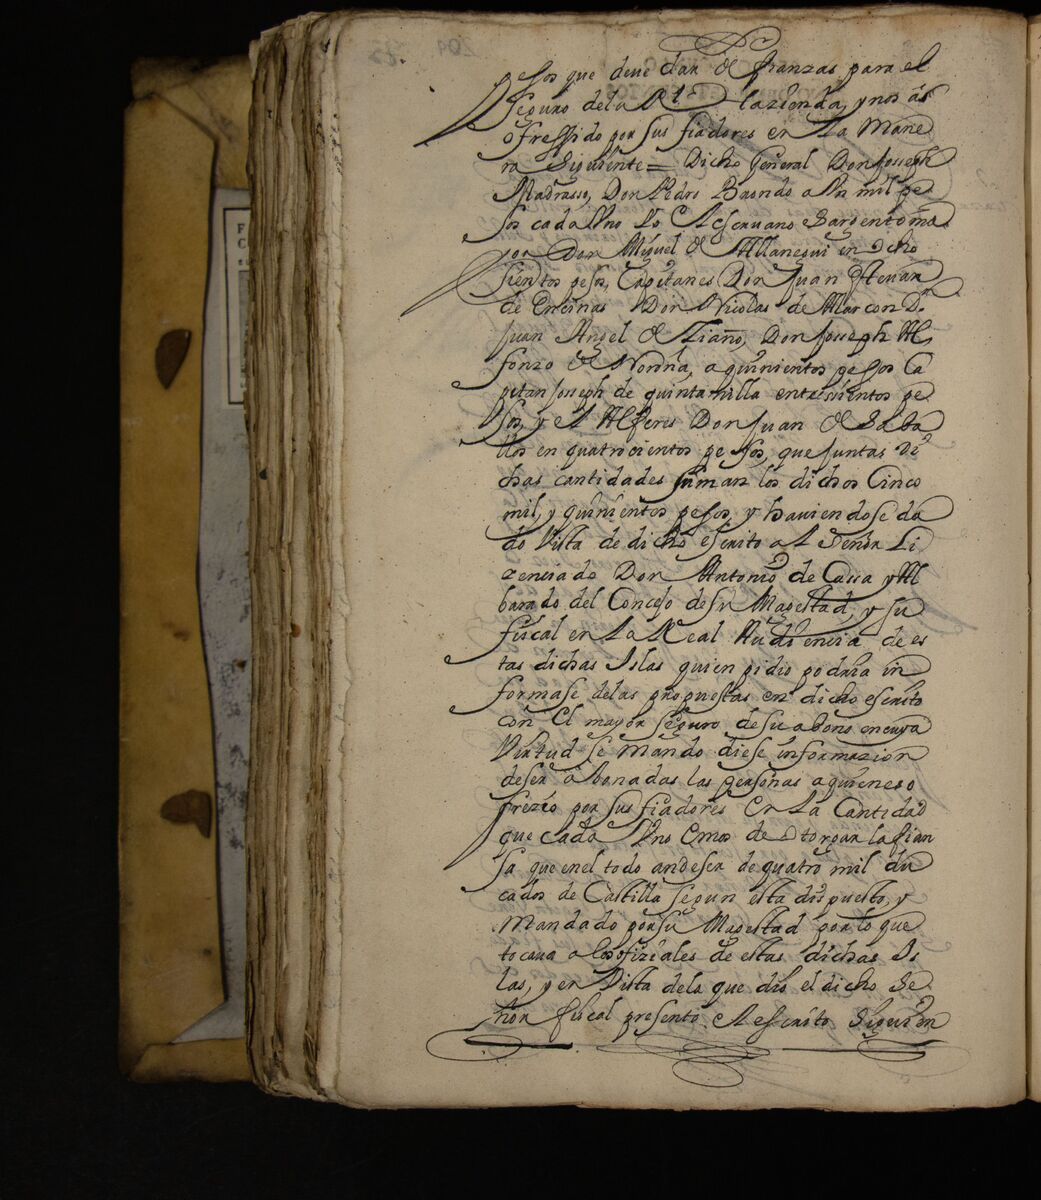 pesos que deve dar de fianzas para el
seguro dela Rl hazienda, y nos ás
ofressido por sus fiadores en la mane
ra siguiente = Dicho General Don Joseph
Madrasso, Don Pedro Baondo a Un mil pe
sos cada Uno los Acsecuano Sargento ma
yor Don Miguel de Allanegui en ocho
sientos pesos, Capitanes Don Juan Estevan
de Encinas Don Nicolas de Alarcon Dn
Juan Angel de Liaño, Don Joseph Al
fonzo de Noroña, a quinientos pesos Ca
pitan Joseph de quintanilla entresientos pe
sos, y el Alferes Don Juan de Seba
llos en quatrocientos pesos, que juntas di
chas cantidades suman los dichos Cinco
mil, y quinientos pesos, y haviendose da
do Vista de dicho escrito al Señor Li
zenciado Don Antonio de Casa y Al
barado del Concejo desu Magestad, y su
fiscal en la Real Audiencia de es
tas dichas Islas quien pidio podria in
formase delas propuestas en dicho escrito
con El mayor seguro desu abono encuya
Virtud se mando diese informazion
deser abonadas las personas aquienes o
frezio por sus fiadores en la Cantidad
que cada Uno de otorgar la fian
sa que enel todo andeser de quatro mil du
cados de Castilla segun esta dispuesto, y
mandado por su Magestad por lo que
tocava a los ofiziales de estas dichas Is
las, y en Vista dela que dio el dicho Se
ñor fiscal presento el escrito siguien